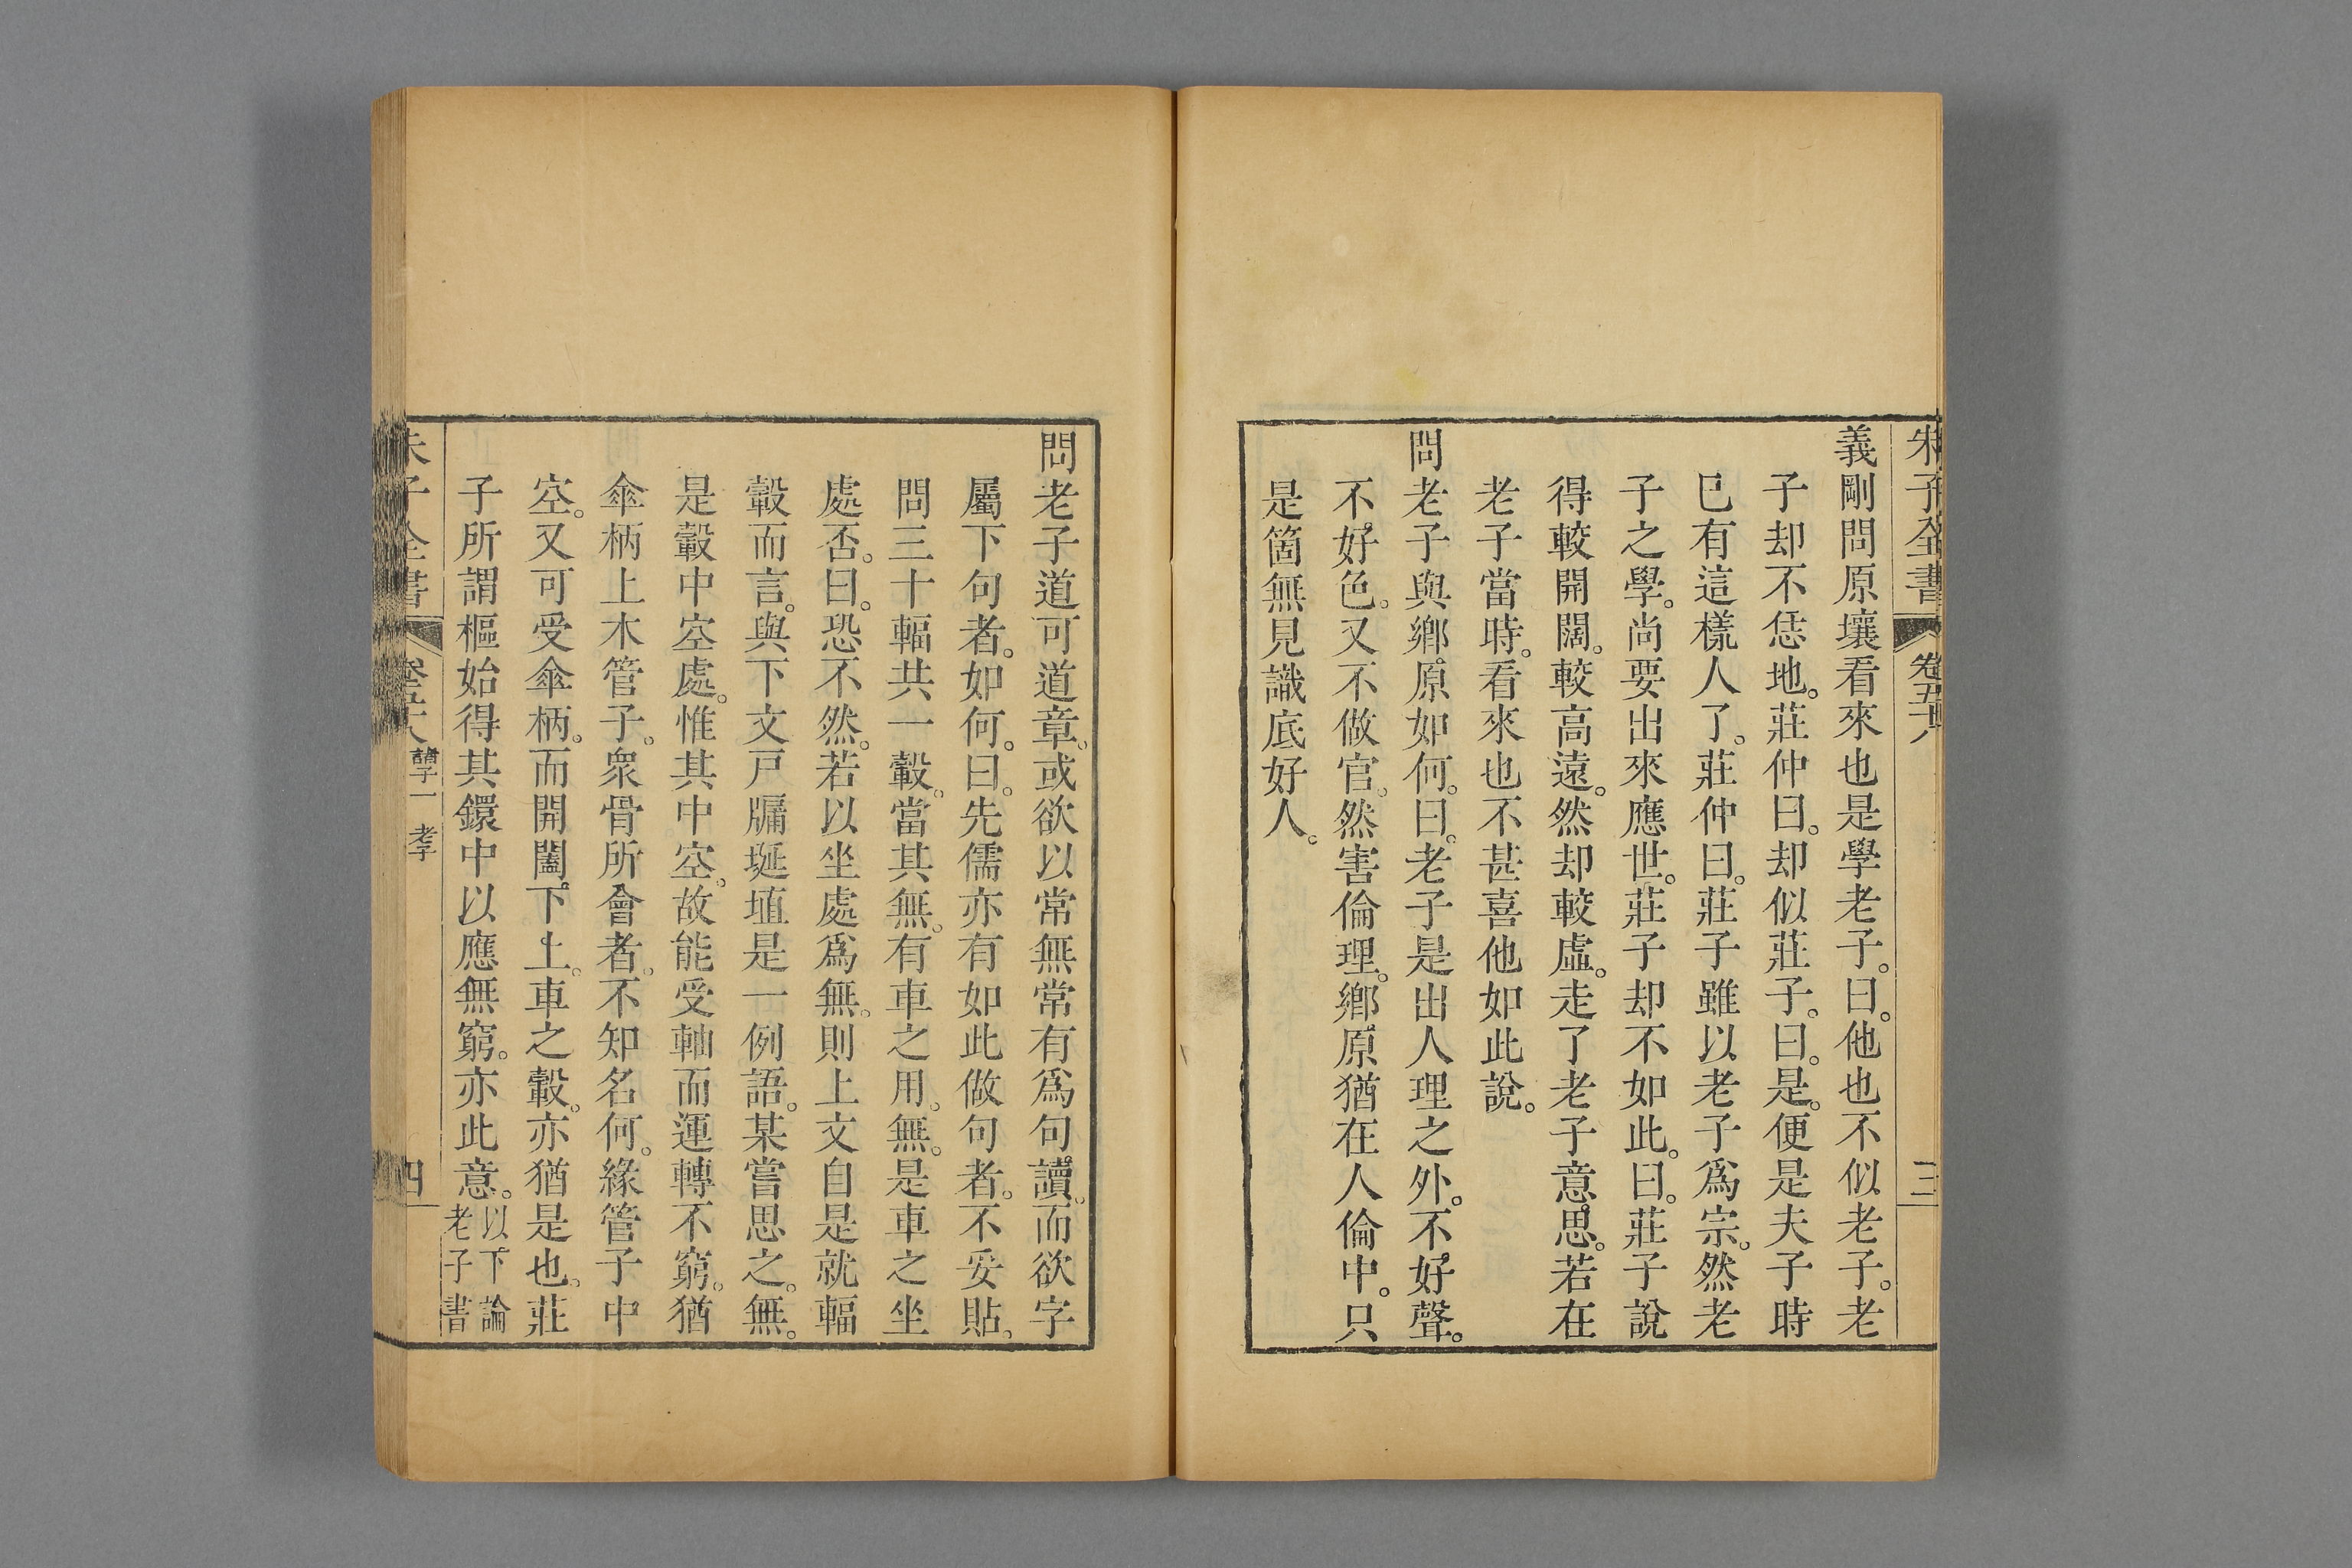 朱子全書 卷五十八 三
義剛問原壤看來也是學老子。曰。他也不似老子。老
子却不恁地。莊仲曰。却似莊子。曰。是。便是夫子時
已有這樣人了。莊仲曰。莊子雖以老子爲宗。然老
子之學。尚要出來應世。莊子却不如此。曰。莊子說
得較開闊。較高遠。然却較虛。走了老子意思。若在
老子當時。看來也不甚喜他如此說。
問老子與鄉原如何。曰。老子是出人理之外。不好聲。
不好色。又不做官。然害倫理。鄉原猶在人倫中。只
是箇無見識底好人。
問老子道可道章。或欲以常無常有爲句讀。而欲字
屬下句者。如何。曰。先儒亦有如此做句者。不妥貼。
問三十輻共一轂。當其無。有車之用。無。是車之坐
處否。曰。恐不然。若以坐處爲無。則上文自是就輻
轂而言。與下文戸牖埏埴是一例語。某嘗思之。無。
是轂中空處。惟其中空。故能受軸而運轉不窮。猶
傘柄上木管子。衆骨所會者。不知名何。緣管子中
空。又可受傘柄。而開闔下上。車之轂。亦猶是也。莊
子所謂樞始得其鐶中以應無窮。亦此意。以下論老子書
朱子全書 四